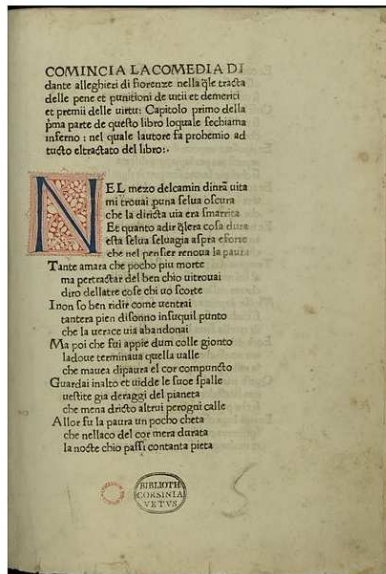 COMINCIA LACOMEDIA DI
dante alleghieri di fiorenze nella q̃le tracta
delle pene et punitioni de uitii et demeriti
et premii delle uirtu: Capitolo primo della
p̃ma parte de questo libro loquale sechiama
inferno : nel quale lautore fa prohemio ad
tucto eltractato del libro:.
NEL mezo delcamin dinr̃a uita
mi trouai ꝑuna selua oscura
che la diricta uia era smarrita
Et quanto adir q̃lera cosa dura
esta selua seluagia aspra eforte
che nel pensier renoua la paura
Tante amara che pocho piu morte
ma pertractar del ben chio uitrouai
diro dellatre cose chi uo scorte
I non so ben ridir come uentrai
tantera pien disonno insuquil punto
che la uerace uia abandonai
Ma poi che fui appie dum colle gionto
ladoue terminaua quella ualle
che mauea dipaura el cor compuncto
Guardai inalto et uidde le suoe spalle
uestite gia deraggi del pianeta
che mena dricto altrui perogni calle
Allor fu la paura un pocho cheta
che nellaco del cor mera durata
la nocte chio passi contanta pieta
BIBLIOTH
CORSINIA
VETVS